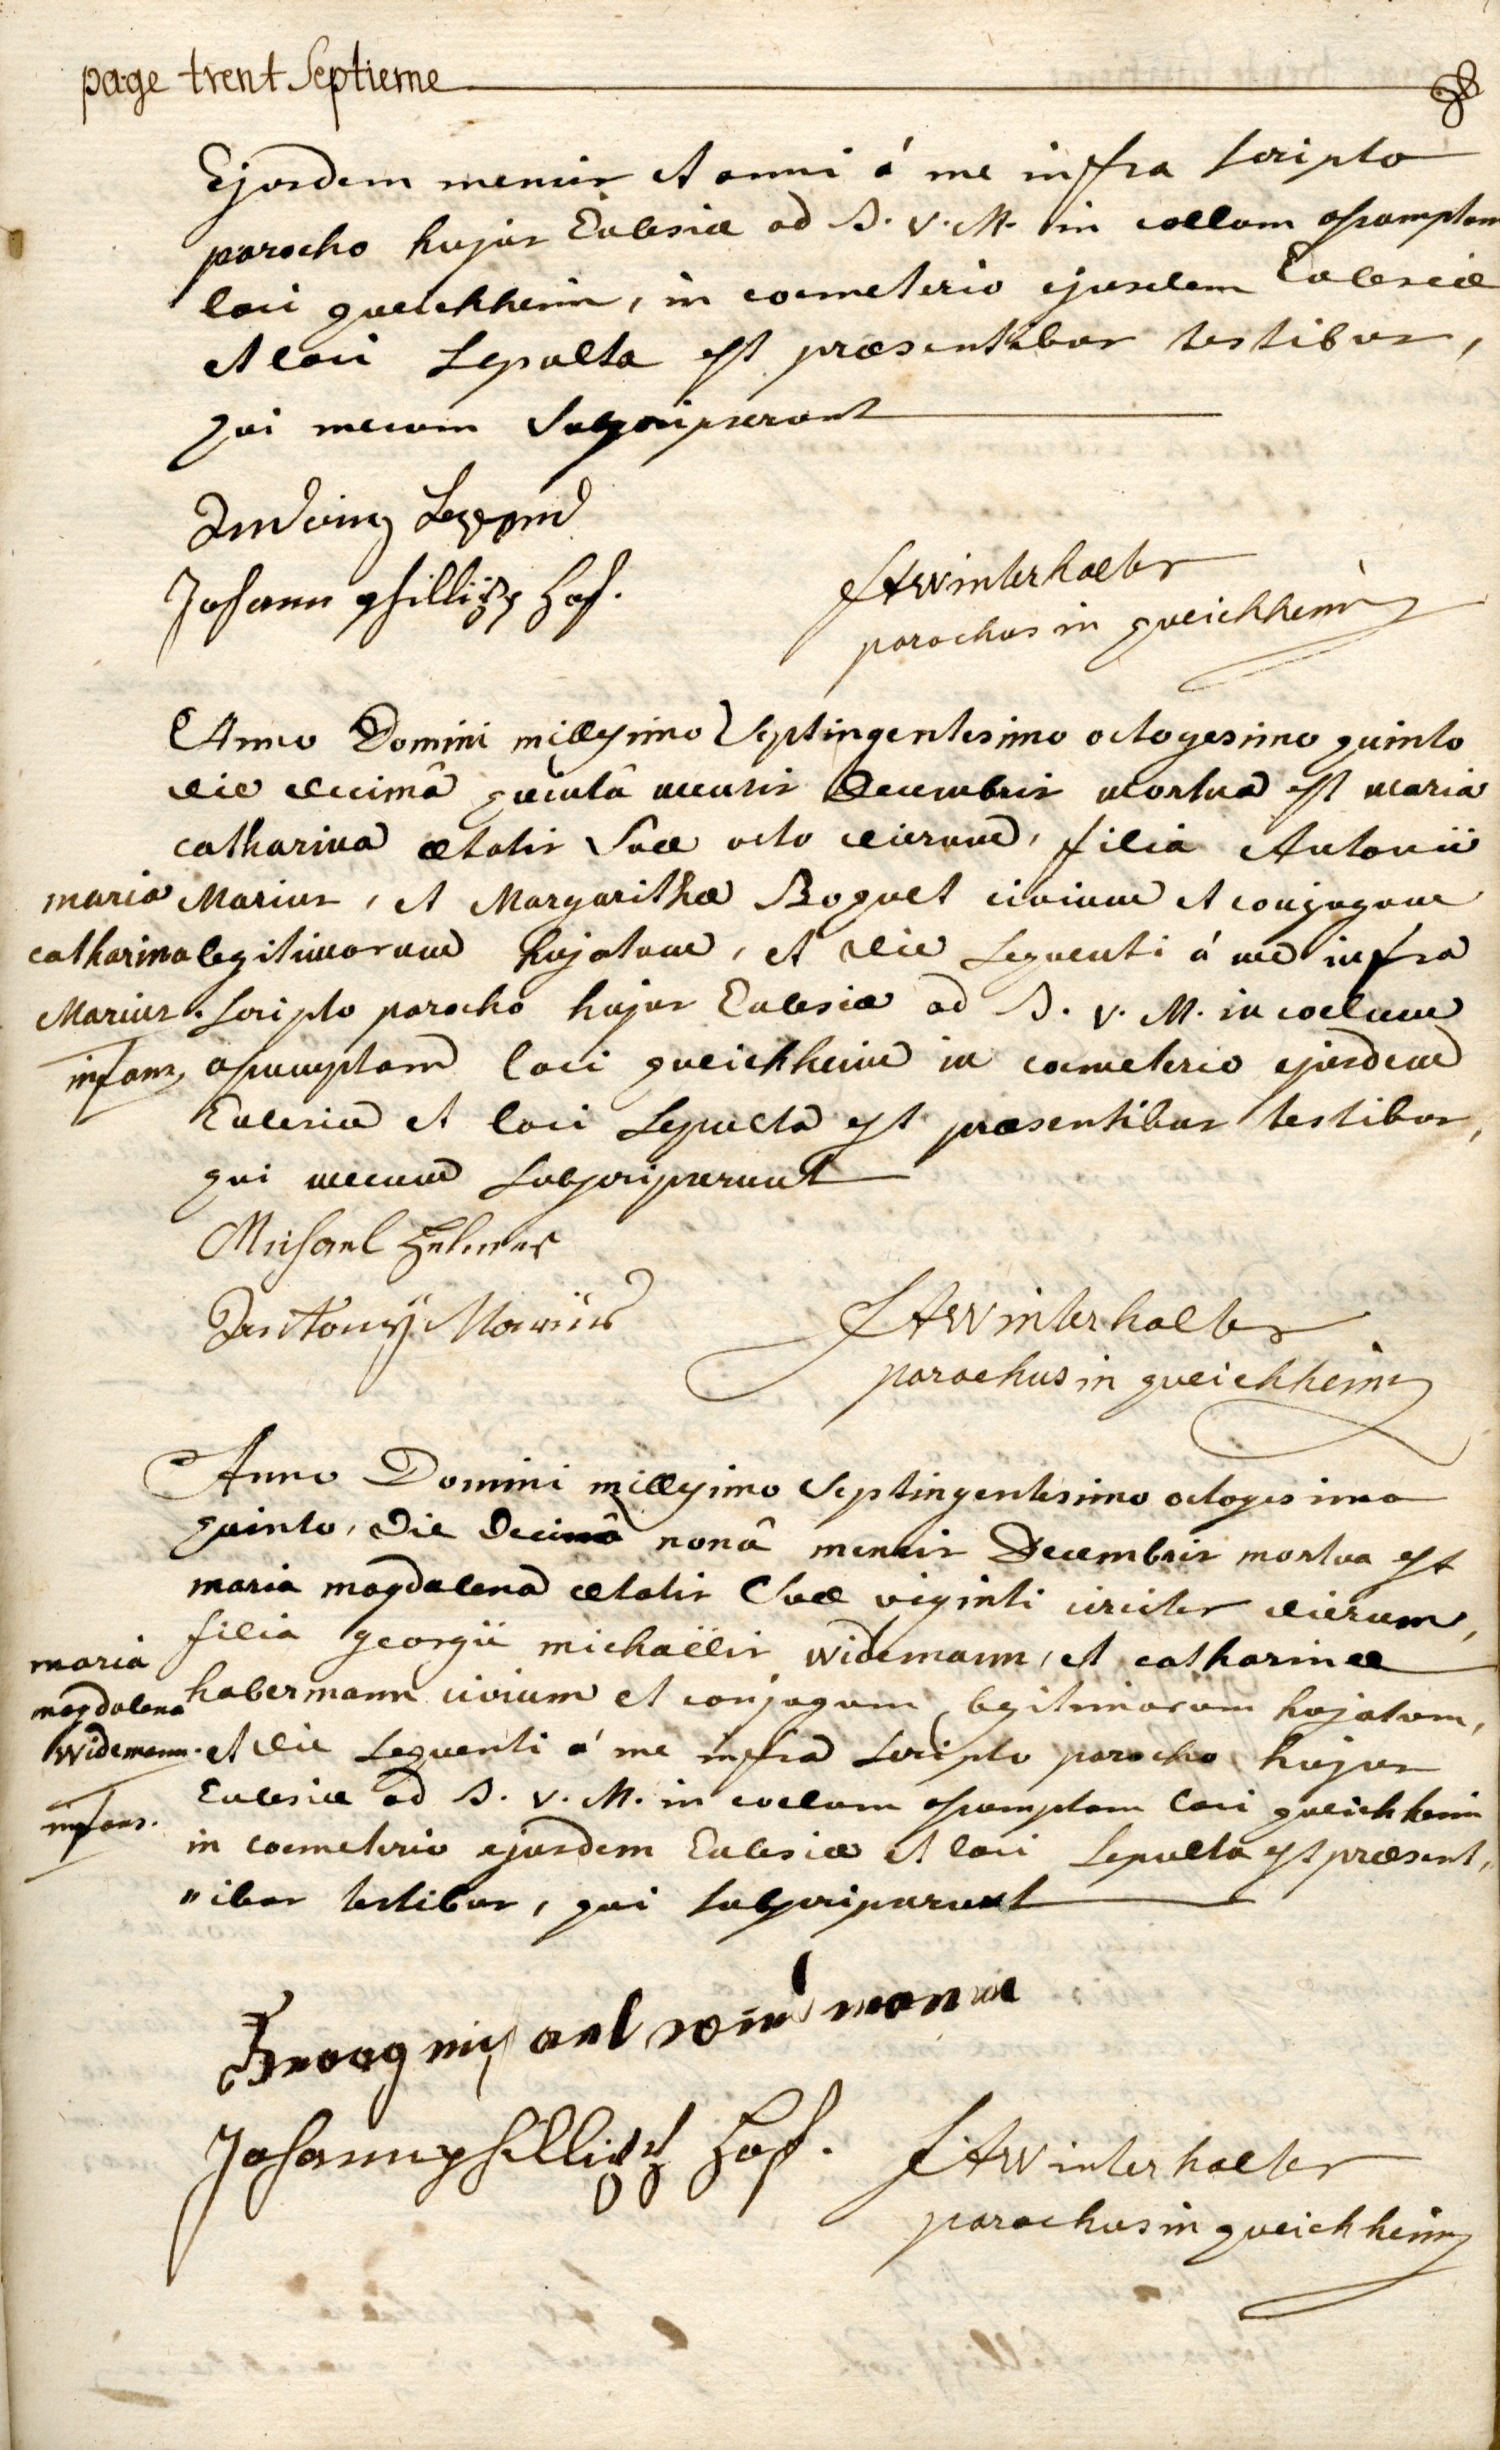 page trent Septieme
Ejusdem mensis et anni á me infra scripto
parocho hujus Ecclesiæ ad B. V. M. in coelum assumptam
loci queichheim, in coemeterio ejusdem Ecclesiæ
et loci Sepulta est præsentibus testibus,
qui mecum Subscripserunt
Johann phillipp Hof.
FAWinterhalter
parochus in queichheim
Anno Domini millesimo Septingentesimo octogesimo quinto
die decimâ quintâ mensis Decembris mortua est maria
catharina ætatis Suæ octo dierum, filia Antonii
maria
Marius, et Margarithæ Boquet civium et conjugum
catharina
legitimorum hujatum, et die Sequenti á me infra
Marius.
Scripto parocho hujus Ecclesiæ ad B. V. M. in coelum
infans,
assumptam loci queichheim in coemeterio ejusdem
Ecclesiæ et loci Sepulta est præsentibus testibus,
qui mecum Subscripserunt
Michael
Antony Mariius
FAWinterhalter
parochus in queichheim
Anno Domini millesimo Septingentesimo octogesimo
quinto, die decimâ nonâ mensis Decembris mortua est
maria magdalena ætatis Suæ viginti circiter dierum,
filia georgii michaëlis widemann, et catharinæ
maria
habermann civium et conjugum legitimorum hujatum,
magdalena
widemann.
et die Sequenti á me infra Scripto parocho hujus
Ecclesiæ ad B. V. M. in coelum assumptam loci queichheim
infans.
in coemeterio ejusdem Ecclesiæ et loci Sepulta est præsent,
"ibus testibus, qui Subscripserunt
Johann phillipp Hof.
FAWinterhalter
parochus in queichheim